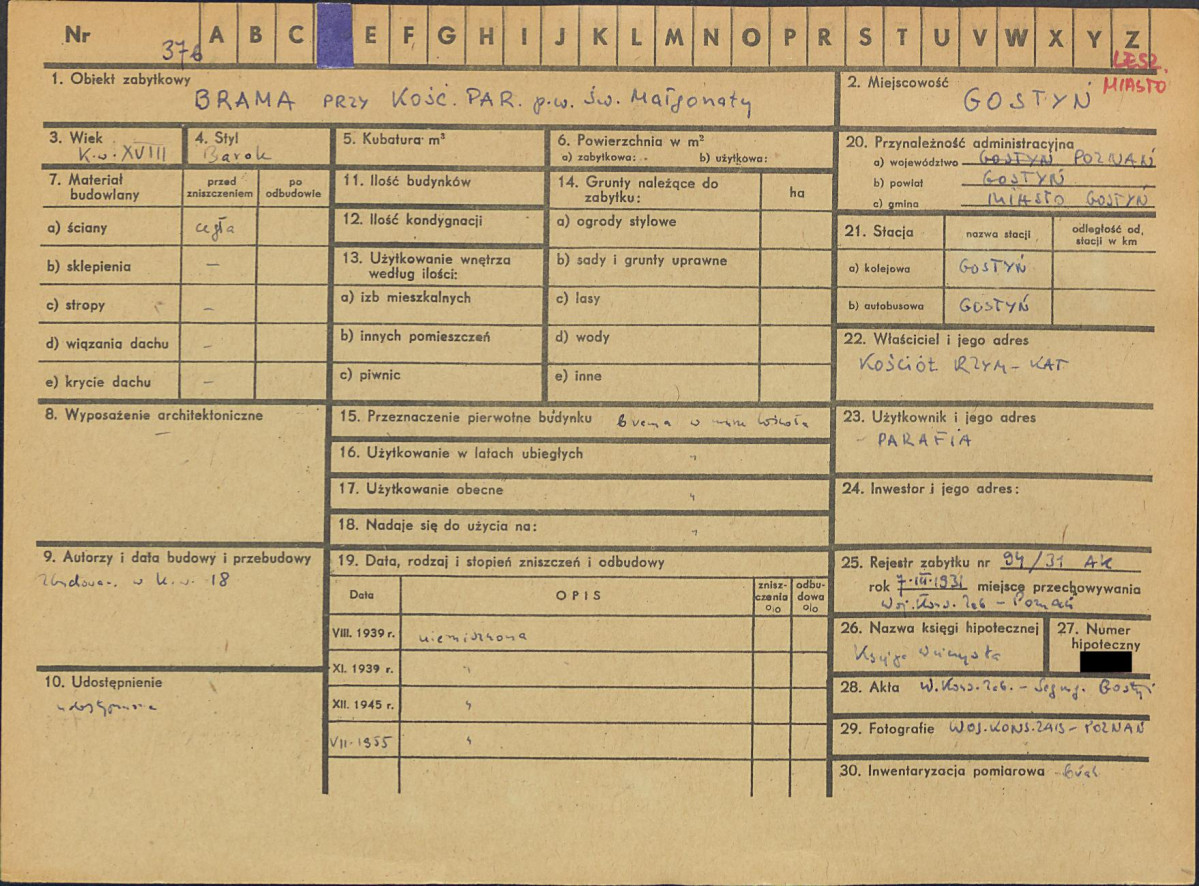 Nr 376 A B C E F G H I J K L M N O P R S T U V W X Y Z
LESZ.
MIASTO
1. Obiekt zabytkowy
BRAMA PRZY KOŚC. PAR. p.w. Św. Małgorzaty
2. Miejscowość
GOSTYŃ
3. Wiek
K.w. XVIII
4. Styl
Barok
5. Kubatura m³
6. Powierzchnia w m²
a) zabytkowa: b) użytkowa:
7. Materiał budowlany
przed zniszczeniem
po odbudowie
a) ściany cegła
b) sklepienia —
c) stropy —
d) wiązania dachu —
e) krycie dachu —
8. Wyposażenie architektoniczne
—
9. Autorzy i data budowy i przebudowy
w k.w. 18
10. Udostępnienie
11. Ilość budynków
12. Ilość kondygnacji
13. Użytkowanie wnętrza według ilości:
a) izb mieszkalnych
b) innych pomieszczeń
c) piwnic
14. Grunty należące do zabytku:
ha
a) ogrody stylowe
b) sady i grunty uprawne
c) lasy
d) wody
e) inne
15. Przeznaczenie pierwotne budynku brama w
16. Użytkowanie w latach ubiegłych "
17. Użytkowanie obecne "
18. Nadaje się do użycia na: "
19. Data, rodzaj i stopień zniszczeń i odbudowy
Data
OPIS
znisz-
czenia
o/o
odbu-
dowa
o/o
VIII. 1939 r.
XI. 1939 r. "
XII. 1945 r. "
VII-1955 "
20. Przynależność administracyjna
a) województwo GOSTYŃ POZNAŃ
b) powiat GOSTYŃ
c) gmina MIASTO GOSTYŃ
21. Stacja
nazwa stacji
odległość od,
stacji w km
a) kolejowa GOSTYŃ
b) autobusowa GOSTYŃ
22. Właściciel i jego adres
KOŚCIÓŁ RZYM-KAT
23. Użytkownik i jego adres
- PARAFIA
24. Inwestor i jego adres:
25. Rejestr zabytku nr 94/31 AK
rok 7.III.1931 miejsce przechowywania
Woj. Kons. Zab - Poznań
26. Nazwa księgi hipotecznej
Księga
27. Numer
hipoteczny
28. Akta W. Kons. Zab. - Gostyń
29. Fotografie WOJ. KONS. ZAB - POZNAŃ
30. Inwentaryzacja pomiarowa - brak